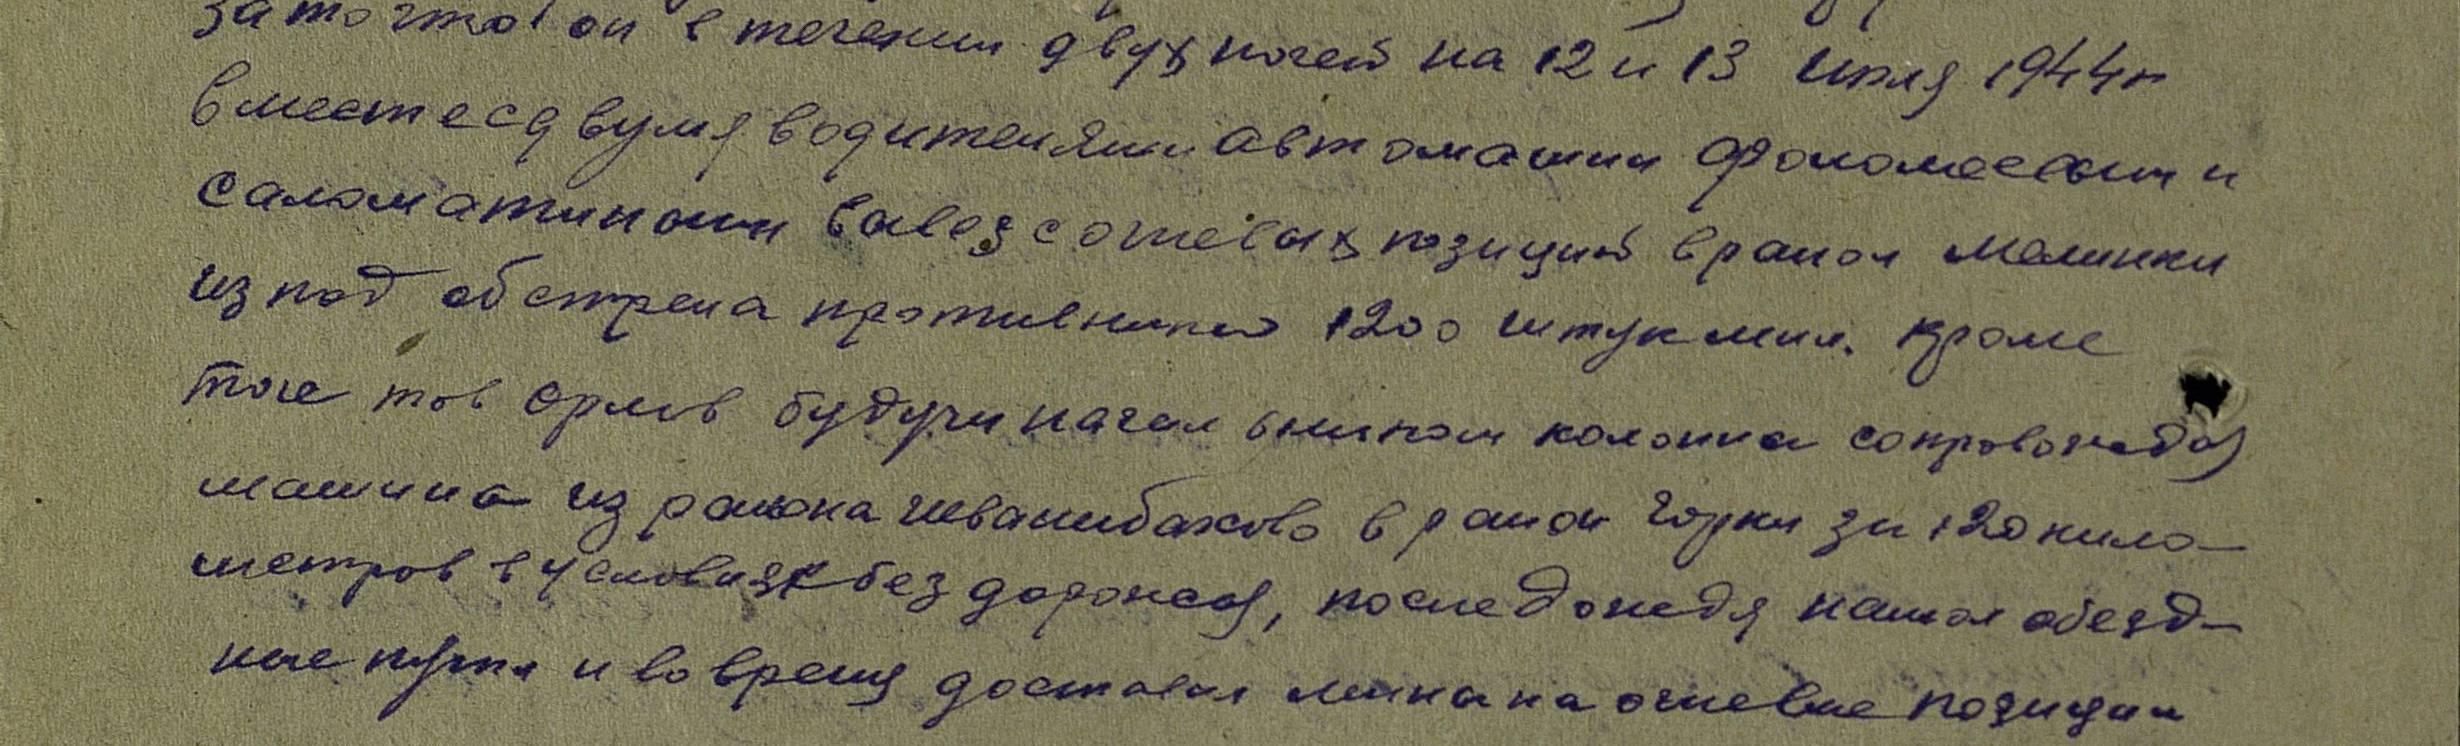 за то что он в течении двух ночей на 12 и 13 июля 1944 г
вместе с двумя водителями автомашин Фоломеевым и
Саломатиным вывез с огневых позиций в районе Малинки
из под обстрела противника 1200 штук мин. Кроме
того тов Орлов будучи начальником колонны сопровождал
машины из района в район Горки за 120 кило-
метров в условиях без дорожья, после дождя нашол обезд-
ные пути и во время доставил мины на огневые позиции